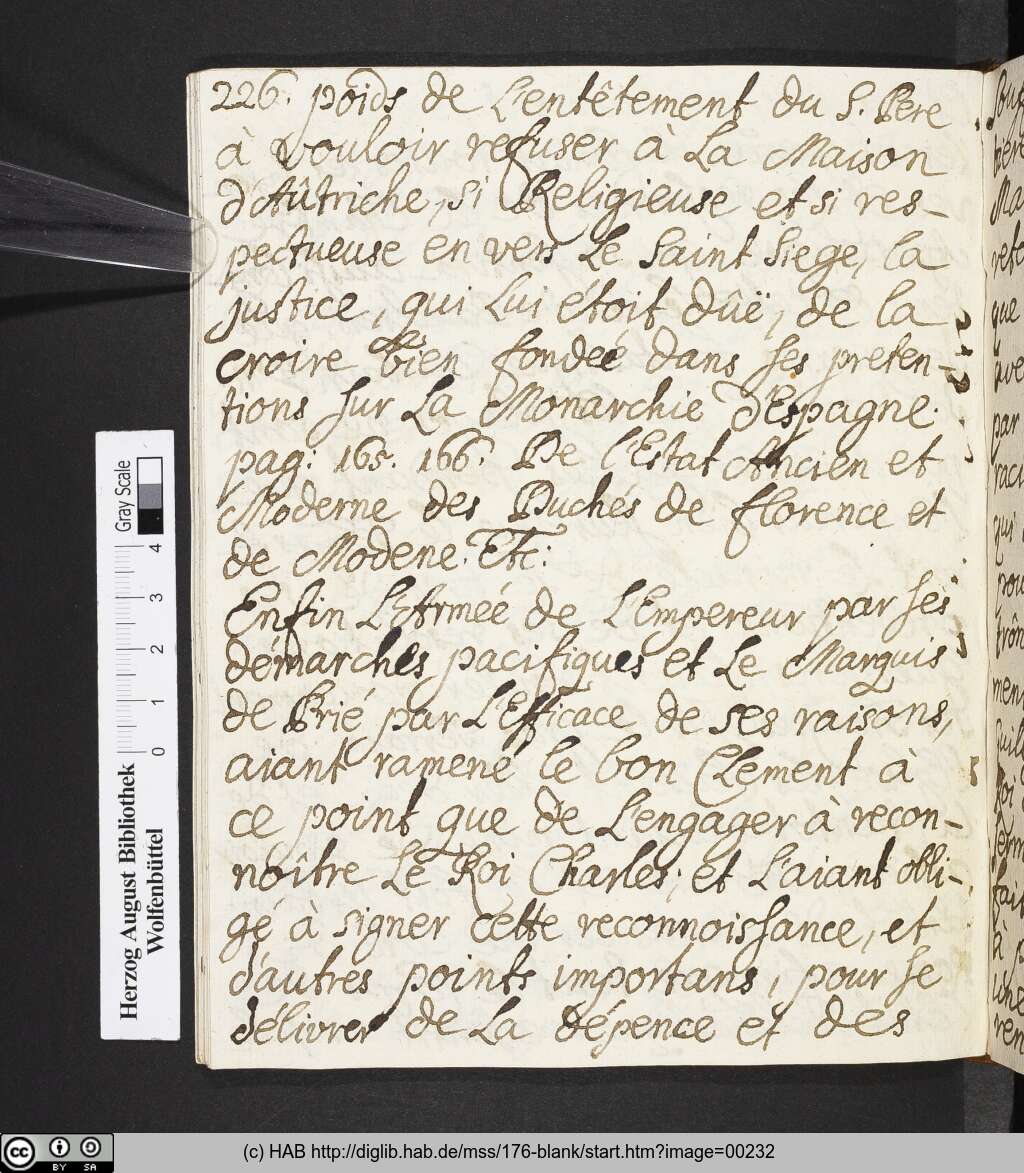 226. poids de L'entêtement du S. Pere
à vouloir refuser à La Maison
d'Aûtriche, si Religieuse et si res-
pectueuse en vers Le Saint Siege, la
justice, qui Lui étoit dûë, de la
croire bien fondeé dans ses preten-
tions sur La Monarchie d'Espagne.
pag: 165. 166. De l'Estat Ancien et
Moderne des Duchés de florence et
de Modene. Etc:
Enfin L'Armeé de L'Empereur par ses
démarches pacifiques et Le Marquis
de Prié par L'Efficace de ses raisons,
aiant ramené le bon Clement à
ce point que de L'engager à recon-
noître Le Roi Charles; et L'aiant obli-
gé à signer cette reconnoissance, et
d'autres points importans, pour se
délivrer de La dépence et des
Herzog August Bibliothek
Wolfenbüttel
0 1 2 3 4
Gray Scale
cc BY SA
(c) HAB http://diglib.hab.de/mss/176-blank/start.htm?image=00232